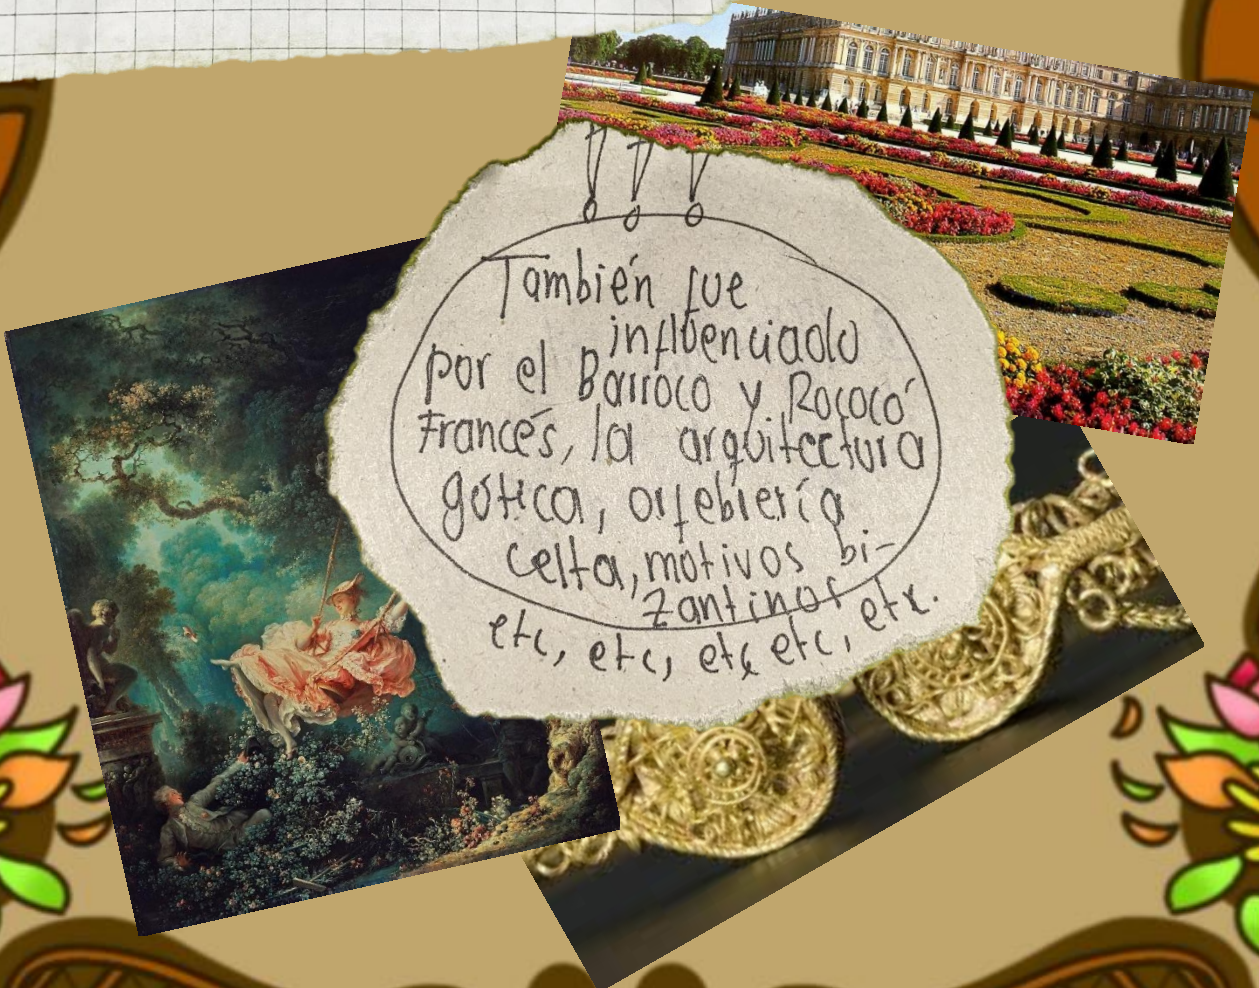 También fue
influenciado
por el Barroco y Rococó
Francés, la arquitectura
gótica, orfebrería
celta, motivos bi-
zantinos
etc, etc, etc, etc, etx.